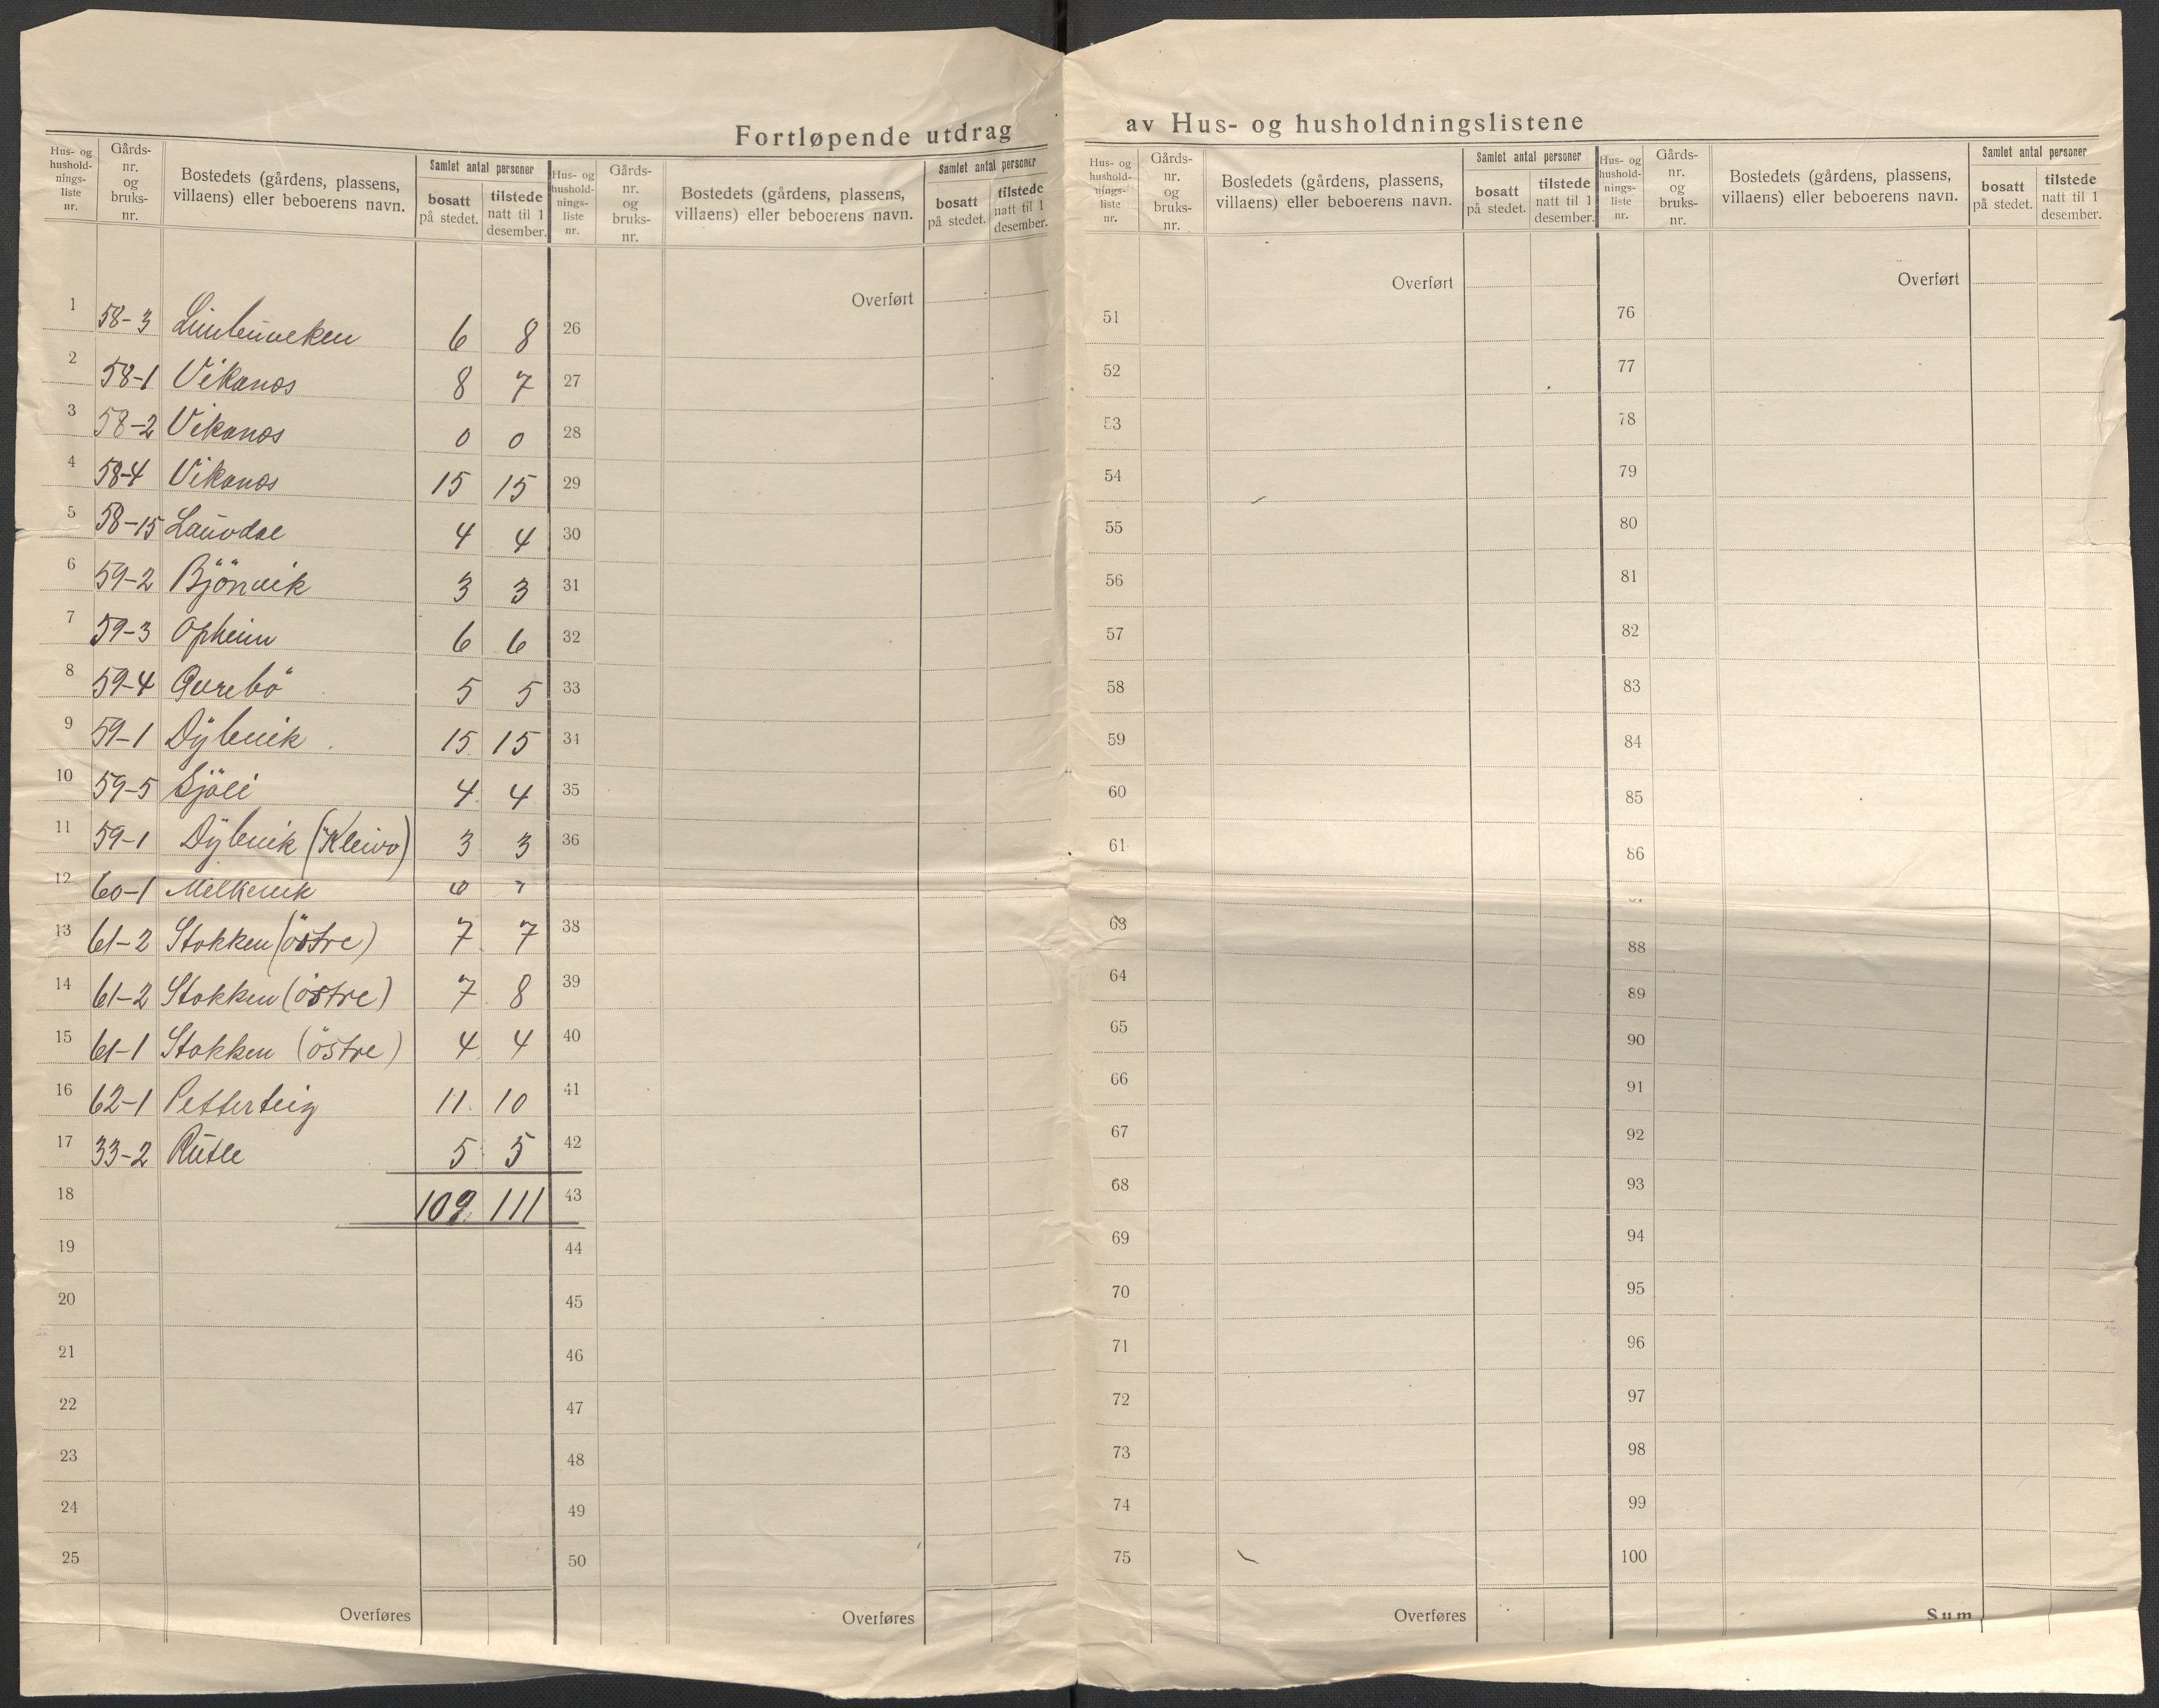 Fortløpende utdrag av Hus- og husholdningslistene
Hus- og hushold- nings- liste nr.
Gårds- nr. og bruks- nr.
Bostedets (gårdens, plassens, villaens) eller beboerens navn.
Samlet antal personer
bosatt på stedet.
tilstede natt til 1 desember.
Hus- og hushold- nings- liste nr.
Gårds- nr. og bruks- nr.
Bostedets (gårdens, plassens, villaens) eller beboerens navn.
Samlet antal personer
bosatt på stedet.
tilstede natt til 1 desember.
1 58-3 6 8
2 58-1 Vikanes 8 7
3 58-2 Vikanes 0 0
4 58-4 Vikanes 15 15
5 58-15 Lauvdal 4 4
6 59-2 Björnvik 3 3
7 59-3 Opheim 6 6
8 59-4 Aurebö 5 5
9 59-1 Dybvik 15 15
10 59-5 Sjöli 4 4
11 59-1 Dybvik (Kleivo) 3 3
12 60-1 Melkevik
13 61-2 Stokken (östre) 7 7
14 61-2 Stokken (östre) 7 8
15 61-1 Stokken (östre) 4 4
16 62-1 Petterteig 11 10
17 33-2 Rutle 5 5
18 109 111
19
20
21
22
23
24
25
Overføres
Overført
26
27
28
29
30
31
32
33
34
35
36
38
39
40
41
42
43
44
45
46
47
48
49
50
Overføres
Hus- og hushold- nings- liste nr.
Gårds- nr. og bruks- nr.
Bostedets (gårdens, plassens, villaens) eller beboerens navn.
Samlet antal personer
bosatt på stedet.
tilstede natt til 1 desember.
Hus- og hushold- nings- liste nr.
Gårds- nr. og bruks- nr.
Bostedets (gårdens, plassens, villaens) eller beboerens navn.
Samlet antal personer
bosatt på stedet.
tilstede natt til 1 desember.
Overført
51
52
53
54
55
56
57
58
59
60
61
63
64
65
66
67
68
69
70
71
72
73
74
75
Overføres
Overført
76
77
78
79
80
81
82
83
84
85
86
88
89
90
91
92
93
94
95
96
97
98
99
100
Sum